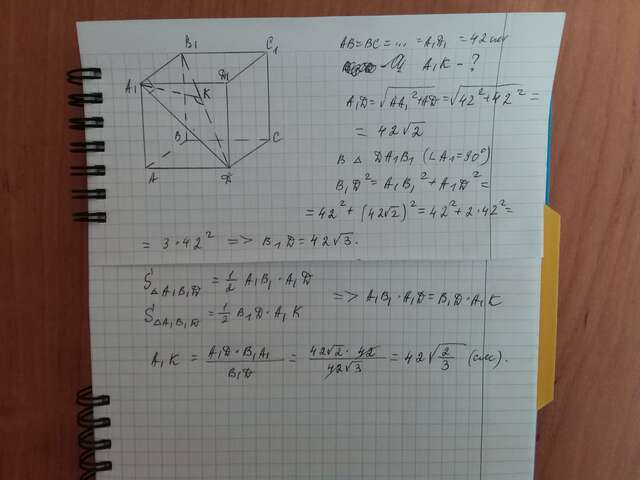 B₁
C₁
A₁
D₁
K
B
C
A
D
AB=BC=...=A₁D₁=42 см
A₁K-?
A₁D=√AA₁²+AD=√42²+42²=
=42√2
В △ DA₁B₁ (∠A₁=90°)
B₁D²=A₁B₁²+A₁D²=
=42²+(42√2)²=42²+2·42²=
=3·42² => B₁D=42√3.
S△A₁B₁D=1/2 A₁B₁·A₁D
=> A₁B₁·A₁D=B₁D·A₁K
S△A₁B₁D=1/2 B₁D·A₁K
A₁K = A₁D·B₁A₁/B₁D = 42√2·42/42√3 = 42√2/3 (см).